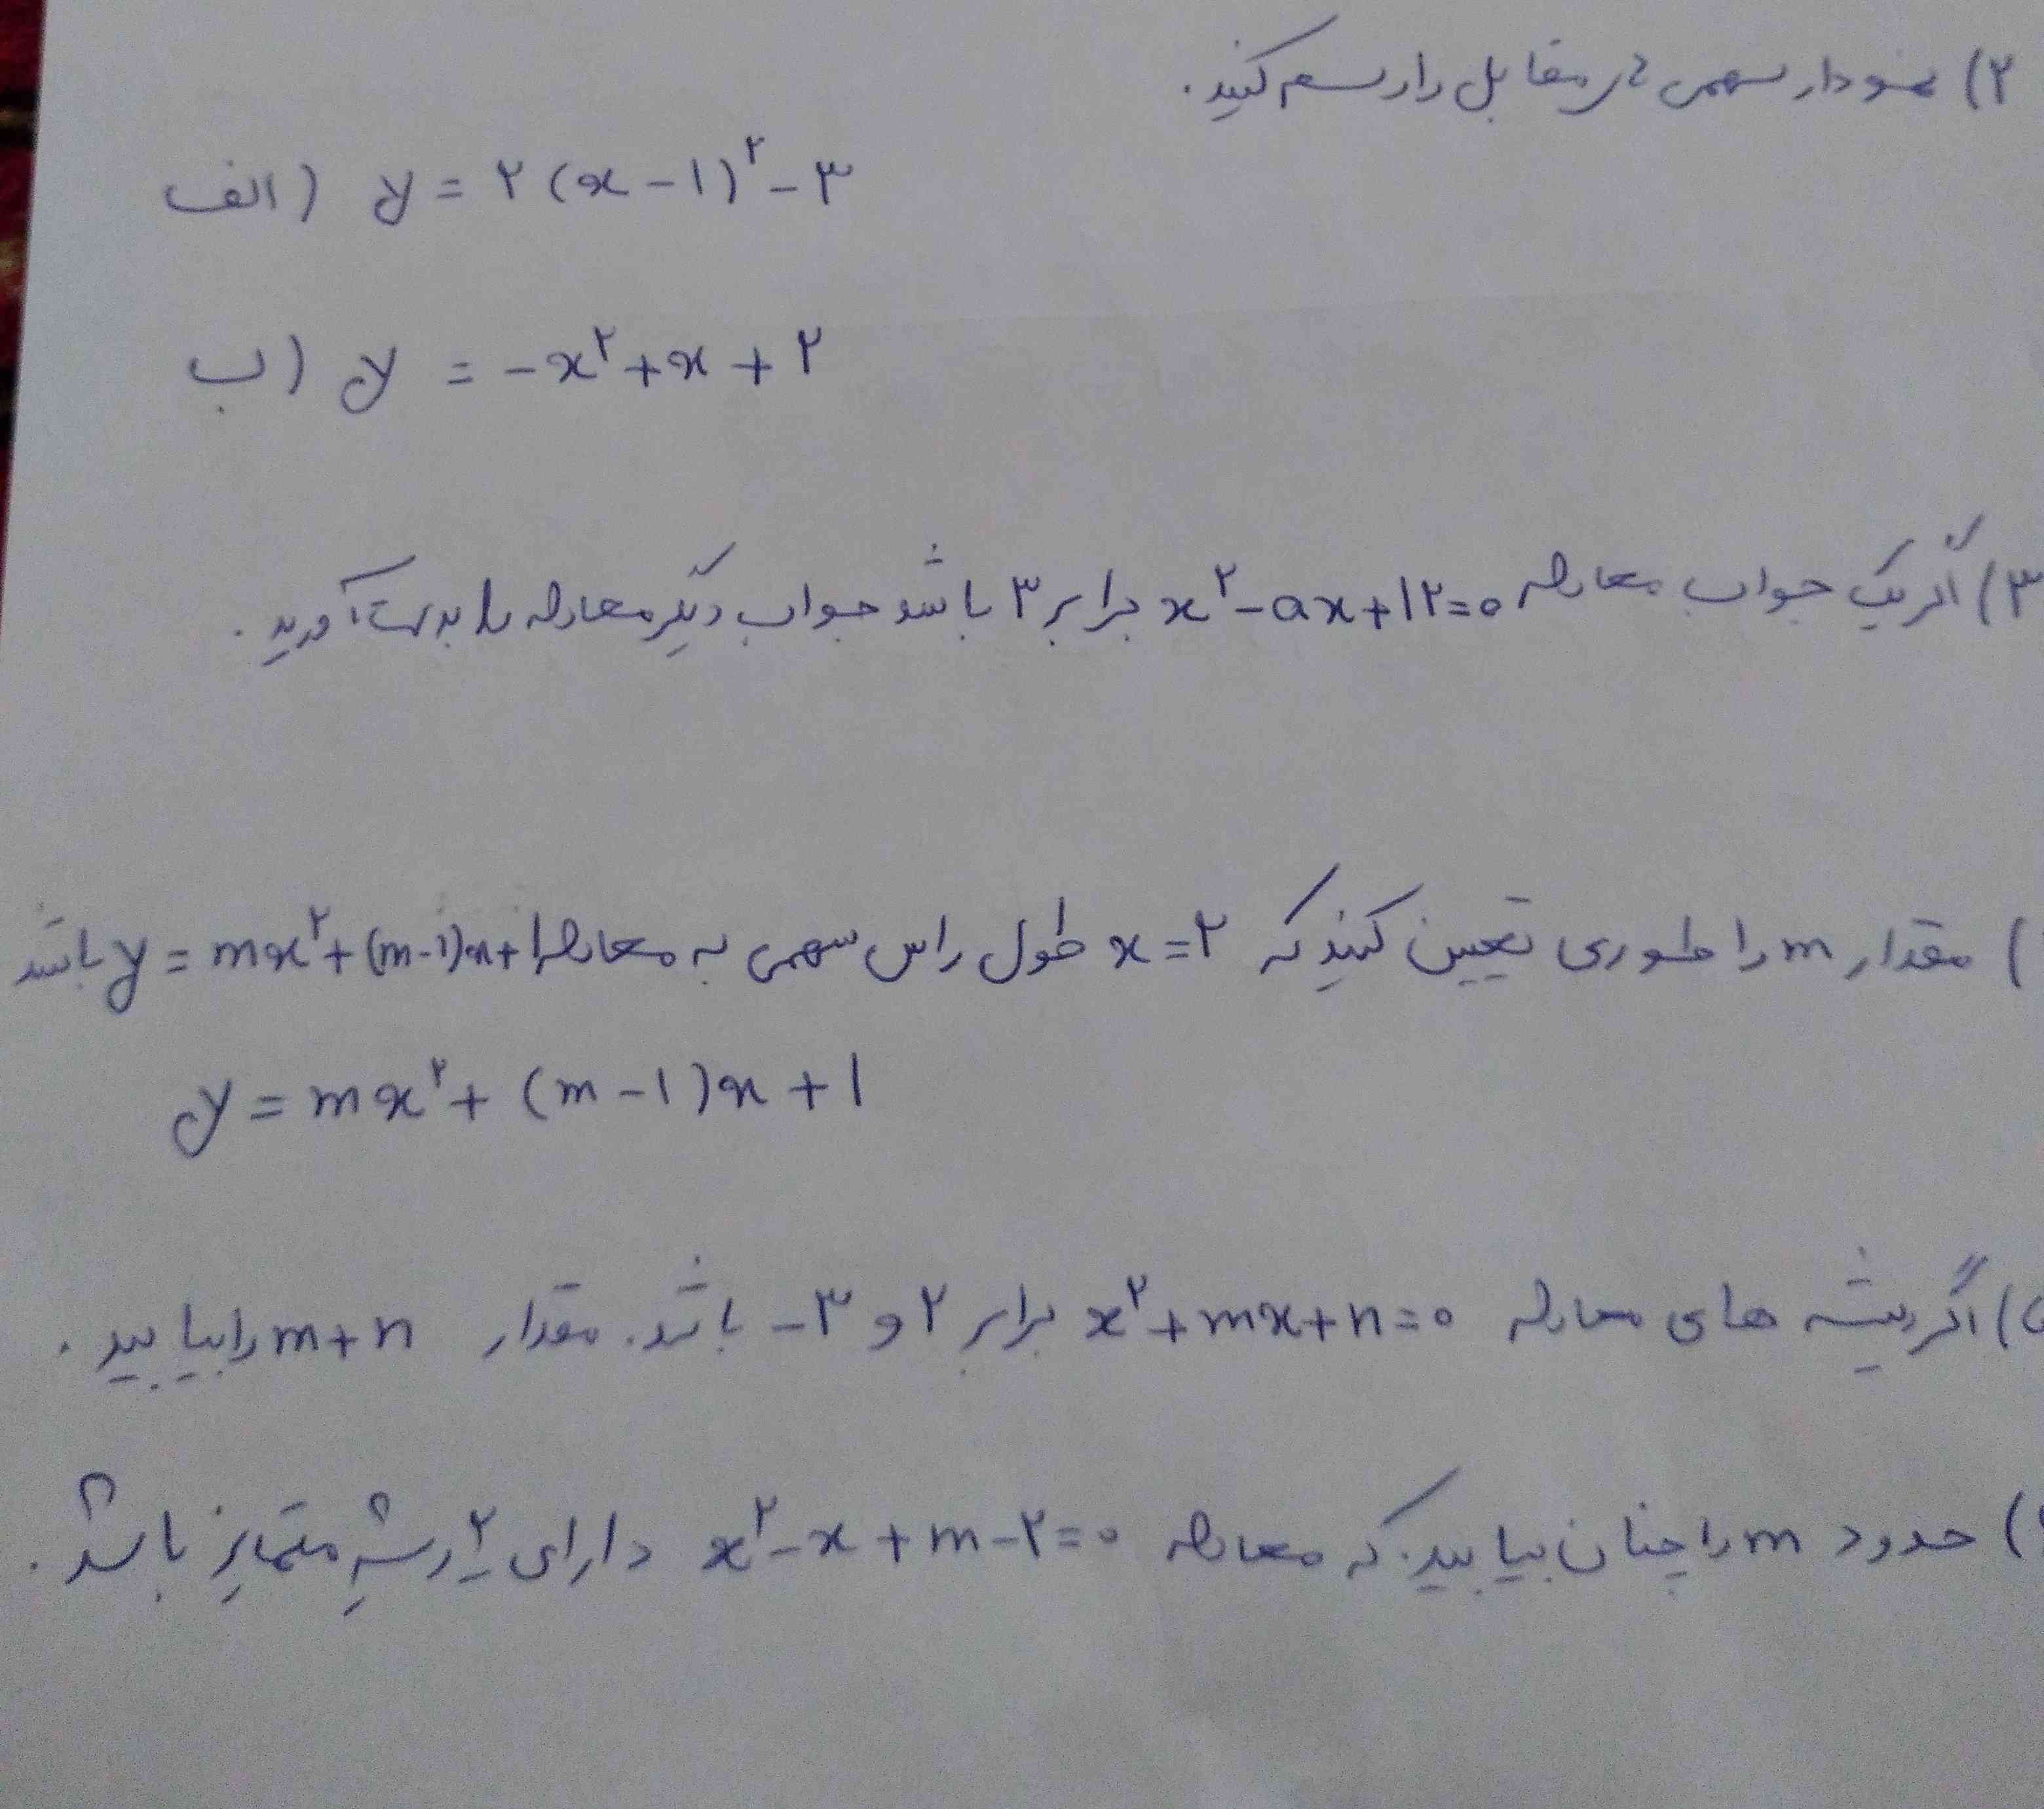 ۲) نمودار سهمی های مقابل را رسم کنید.
الف) y = ۲(x-۱)^۲-۳
ب) y = -x^۲+x+۲
۳) اگر یک جواب معادله x^۲-ax+۱۲=۰ برابر ۳ باشد جواب دیگر معادله را بدست آورید.
) مقدار m را طوری تعیین کنید که x=۲ طول راس سهمی به معادله y = mx^۲+(m-۱)x+۱ باشد
y = mx^۲+(m-۱)x+۱
) اگر ریشه های معادله x^۲+mx+n=۰ برابر ۲ و ۳- باشد. مقدار m+n را بیابید.
) حدود m را چنان بیابید که معادله x^۲-x+m-۲=۰ دارای ۲ ریشه متمایز باشد.